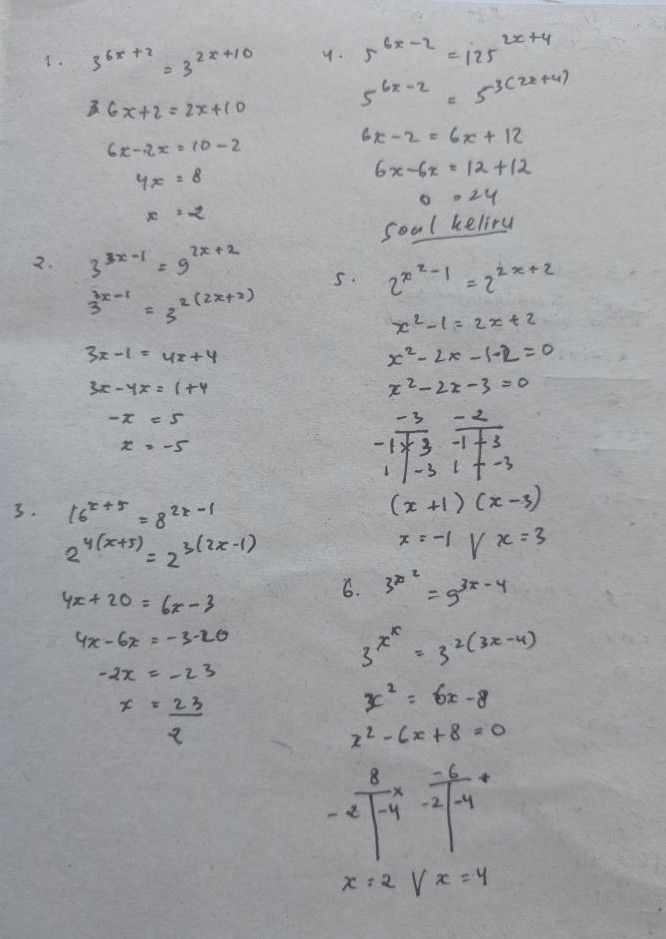 1. 3^{6x+2} = 3^{2x+10}
6x+2 = 2x+10
6x-2x = 10-2
4x = 8
x = 2
2. 3^{3x-1} = 9^{2x+2}
3^{3x-1} = 3^{2(2x+2)}
3x-1 = 4x+4
3x-4x = 1+4
-x = 5
x = -5
3. 16^{x+5} = 8^{2x-1}
2^{4(x+5)} = 2^{3(2x-1)}
4x+20 = 6x-3
4x-6x = -3-20
-2x = -23
x = 23
2
4. 5^{6x-2} = 125^{2x+4}
5^{6x-2} = 5^{3(2x+4)}
6x-2 = 6x+12
6x-6x = 12+12
0 = 24
Soal keliru
5. 2^{x^2-1} = 2^{2x+2}
x^2-1 = 2x+2
x^2-2x-1-2 = 0
x^2-2x-3 = 0
-3 -2
-1 x 3 -1 3
1 -3 1 + -3
(x+1) (x-3)
x = -1 V x = 3
6. 3^{x^2} = 9^{3x-4}
3^{x^x} = 3^{2(3x-4)}
x^2 = 6x-8
x^2-6x+8 = 0
8 x -6 +
-2 -4 -2 -4
x = 2 V x = 4